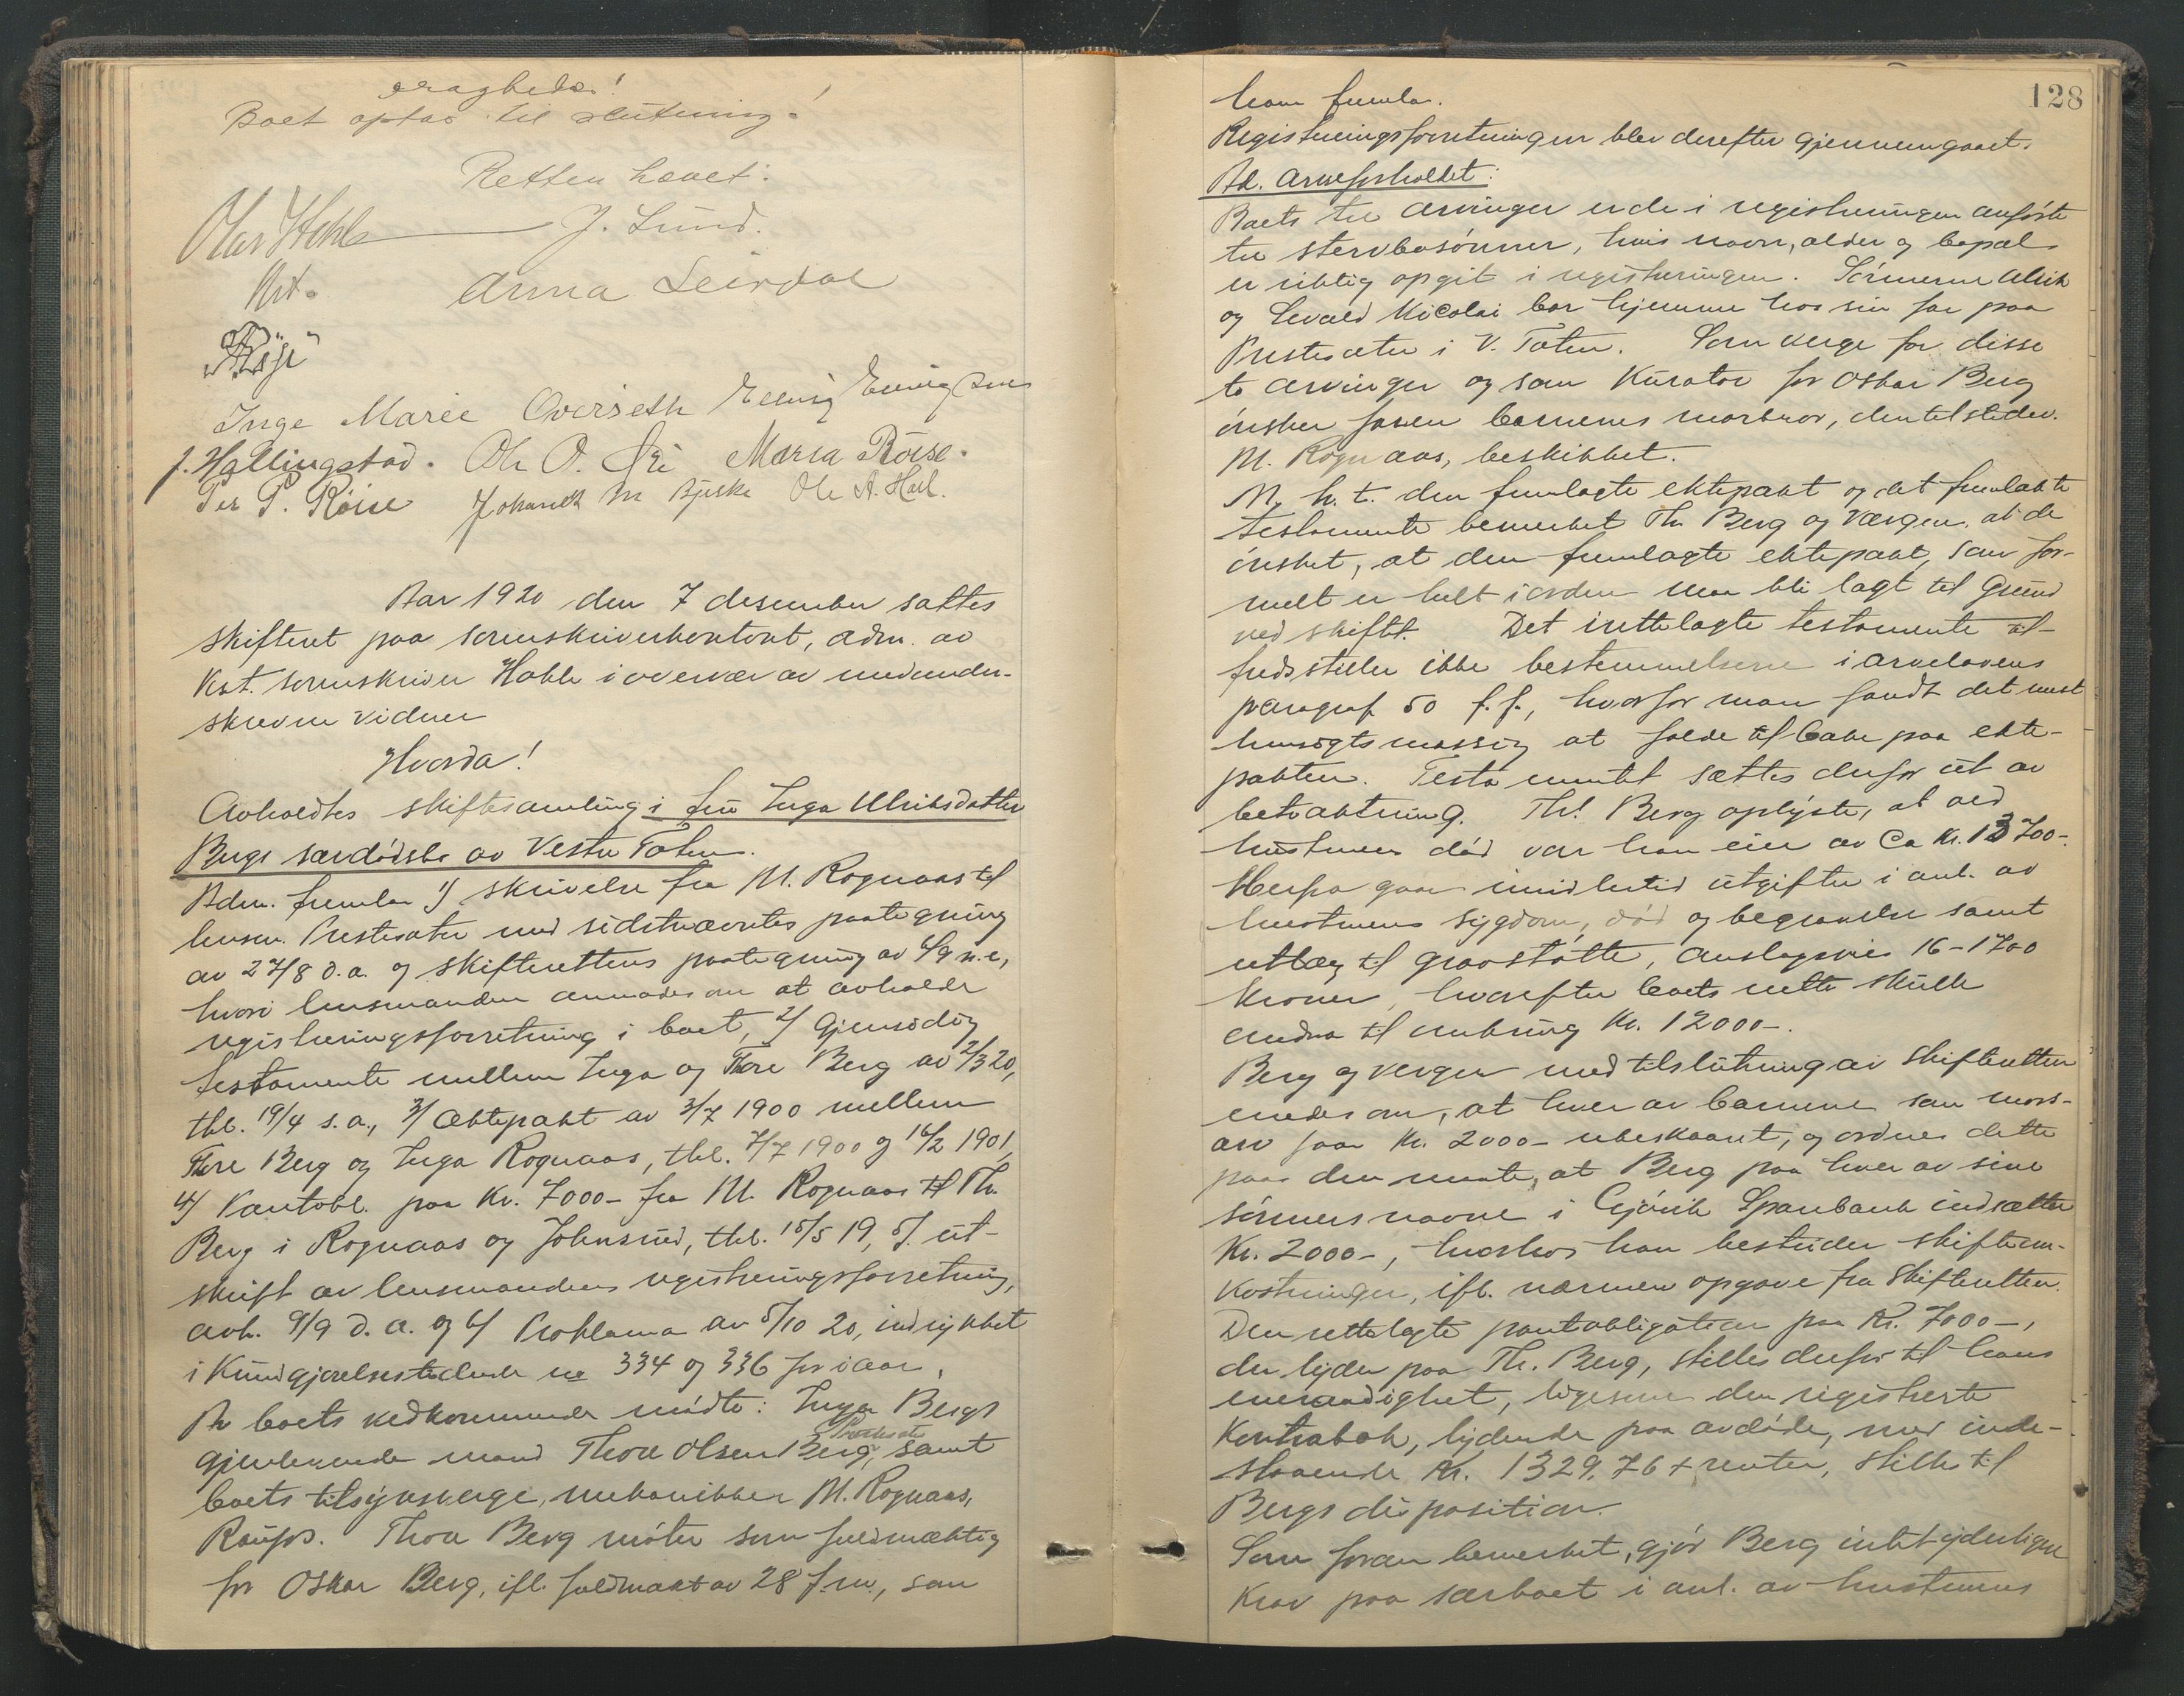 Boet optas til slutning!
Retten hævet.
J. Lund.
Kst.
Anna Leirdal
Inge Marie Overseth
J. Hallingstad. Ole O. Maria Röise.
Per P. Röise Johannes M. Ole A.
Aar 1920 den 7 desember sattes
skifteret paa sorenskriverkontoret, adm. av
Kst. sorenskriver i overvær av medunder-
skrevne vidner
Hvorda!
Avholdtes skiftesamling i fru Inga Ulriksdatter
Bergs særdødsbo av Vestre Toten.
Adm. fremla 1/ skrivelse fra M. Rognaas til
lensm. Prestesæter med sidstnævntes paategning
av 27/8 d.a. og skifterettens paategning av 6/9 n.e,
hvori lensmanden anmodes om at avholde
registreringsforretning i boet, 2/ Gjensidig
testamente mellem Inga og Thore Berg av 2/3 20,
tbl. 19/4 s.a., 3/ Ektepakt av 3/7 1900 mellem
Thore Berg og Inga Rognaas, tbl. 7/7 1900 og 16/2 1901,
4/ Pantobl. paa Kr. 7000- fra M. Rognaas til Th.
Berg i Rognaas og Johnsrud, tbl. 15/5 19, 5/ ut-
skrift av lensmandens registreringsforretning,
avh. 9/9 d.a. og 6/ Proklama av 5/10 20, indrykket
i Kundgjørelsestidende no 334 og 336 for iaar.
Av boets vedkommende mødte: Inga Bergs
gjenlevende mand Thore Olsen Berg, samt
boets tilsynsverge, mekaniker M. Rognaas,
Raufoss. Thore Berg møter som fuldmægtig
for Oskar Berg, ifl. fuldmakt av 28 f.m., som
128
han fremla.
Registreringsforretningen blev derefter gjennemgaaet.
Ad. arveforholdet:
Boets tre arvinger er de i registreringen anførte
tre stervbosønner, hvis navn, alder og bopæl
er riktig opgit i registreringen. Sønnerne Ulrik
og Sevald Nicolai bor hjemme hos sin far paa
Prestesæter i V. Toten. Som verge for disse
to arvinger og som Kurator for Oskar Berg
ønsker faren barnenes morbror, den tilstedev.
M. Rognaas, beskikket.
M. h. t. den fremlagte ektepakt og det fremlakte
testamente bemerket Th. Berg og Værgen, at de
ønsket, at den fremlagte ektepakt, som for-
melt er helt i orden maa bli lagt til Grund
ved skiftet. Det irettelagte testamente til-
fredsstiller ikke bestemmelserne i arvelovens
paragraf 50 f.f., hvorfor man fandt det mest
hensigtsmæssig at falde tilbake paa ekte-
pakten. Testamentet sættes derfor ut av
betraktning. Th. Berg oplyste, at ved
hustruens død var han eier av Ca Kr. 13700-.
Herfra gaar imidlertid utgifter i anl. av
hustruens sygdom, død og begravelse samt
utlæg til gravstøtte, anslagsvis 16-1700
kroner, hvorefter boets netto skulle
andra til omkring Kr. 12000-.
Berg og vergen med tilslutning av skifteretten
enedes om, at hver av barnene som mors-
arv faar Kr. 2000- ubeskaaret, og ordnes dette
paa den maate, at Berg paa hver av sine
sønners navne i Gjøvik Sparebank indsætter
Kr. 2000-, hvorhos han bestrider skifteom-
kostninger, ifl. nærmere opgave fra skifteretten.
Den rettelagte pantobligation paa Kr. 7000-,
der lyder paa Th. Berg, stilles derfor til hans
eneraadighet, ligesom den registrerte
Kontrabok, lydende paa avdøde, med inde-
staaende Kr. 1329,76 + renter, stilles til
Bergs disposition.
Som foran bemerket, gjør Berg intet yderligere
Krav paa særboet i anl. av hustruens